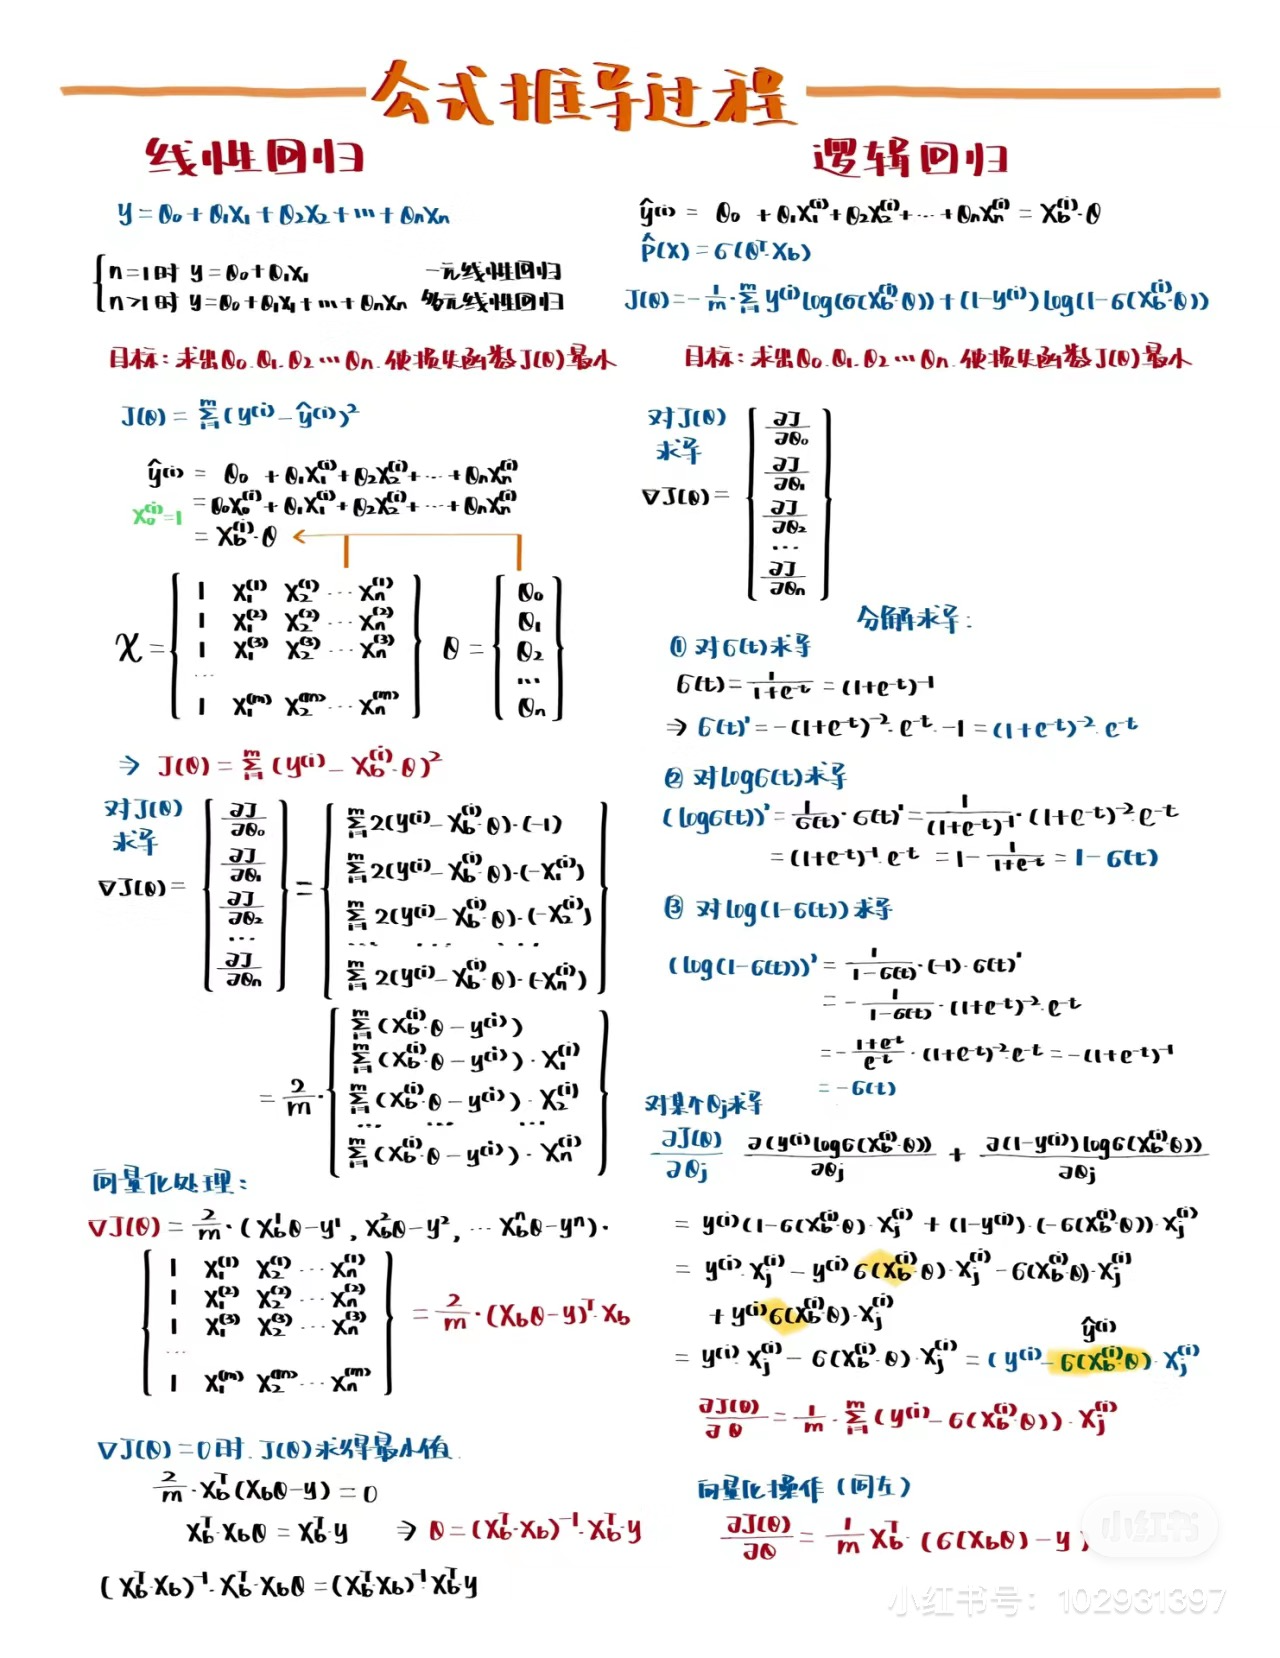 公式推导过程
线性回归
y = θ₀ + θ₁X₁ + θ₂X₂ + ··· + θnXn
n=1时 y = θ₀ + θ₁X₁ 一元线性回归
n>1时 y = θ₀ + θ₁X₁ + ··· + θnXn 多元线性回归
目标：求出θ₀.θ₁.θ₂···θn.使损失函数J(θ)最小
J(θ) = Σᵢ₌₁ᵐ (y⁽ⁱ⁾ - ŷ⁽ⁱ⁾)²
ŷ⁽ⁱ⁾ = θ₀ + θ₁X₁⁽ⁱ⁾ + θ₂X₂⁽ⁱ⁾ + ··· + θnXn⁽ⁱ⁾
X₀⁽ⁱ⁾=1 = θ₀X₀⁽ⁱ⁾ + θ₁X₁⁽ⁱ⁾ + θ₂X₂⁽ⁱ⁾ + ··· + θnXn⁽ⁱ⁾
= Xb⁽ⁱ⁾·θ
1 X₁⁽¹⁾ X₂⁽¹⁾ ··· Xn⁽¹⁾ θ₀
1 X₁⁽²⁾ X₂⁽²⁾ ··· Xn⁽²⁾ θ₁
X = 1 X₁⁽³⁾ X₂⁽³⁾ ··· Xn⁽³⁾ θ = θ₂
··· ···
1 X₁⁽ᵐ⁾ X₂⁽ᵐ⁾ ··· Xn⁽ᵐ⁾ θn
⇒ J(θ) = Σᵢ₌₁ᵐ (y⁽ⁱ⁾ - Xb⁽ⁱ⁾·θ)²
对J(θ)
求导
∇J(θ) =
∂J/∂θ₀
∂J/∂θ₁
∂J/∂θ₂
···
∂J/∂θn
=
Σᵢ₌₁ᵐ 2(y⁽ⁱ⁾ - Xb⁽ⁱ⁾·θ)·(-1)
Σᵢ₌₁ᵐ 2(y⁽ⁱ⁾ - Xb⁽ⁱ⁾·θ)·(-X₁⁽ⁱ⁾)
Σᵢ₌₁ᵐ 2(y⁽ⁱ⁾ - Xb⁽ⁱ⁾·θ)·(-X₂⁽ⁱ⁾)
··· ··· ···
Σᵢ₌₁ᵐ 2(y⁽ⁱ⁾ - Xb⁽ⁱ⁾·θ)·(-Xn⁽ⁱ⁾)
= 2/m ·
Σᵢ₌₁ᵐ (Xb⁽ⁱ⁾·θ - y⁽ⁱ⁾)
Σᵢ₌₁ᵐ (Xb⁽ⁱ⁾·θ - y⁽ⁱ⁾)·X₁⁽ⁱ⁾
Σᵢ₌₁ᵐ (Xb⁽ⁱ⁾·θ - y⁽ⁱ⁾)·X₂⁽ⁱ⁾
··· ··· ···
Σᵢ₌₁ᵐ (Xb⁽ⁱ⁾·θ - y⁽ⁱ⁾)·Xn⁽ⁱ⁾
向量化处理：
∇J(θ) = 2/m·(Xb¹θ-y¹, Xb²θ-y², ··· Xbⁿθ-yⁿ)·
1 X₁⁽¹⁾ X₂⁽¹⁾ ··· Xn⁽¹⁾
1 X₁⁽²⁾ X₂⁽²⁾ ··· Xn⁽²⁾
1 X₁⁽³⁾ X₂⁽³⁾ ··· Xn⁽³⁾
···
1 X₁⁽ᵐ⁾ X₂⁽ᵐ⁾ ··· Xn⁽ᵐ⁾
= 2/m·(Xbθ-y)ᵀ·Xb
∇J(θ)=0时.J(θ)求得最小值.
2/m·Xbᵀ(Xbθ-y) = 0
Xbᵀ·Xbθ = Xbᵀ·y ⇒ θ = (Xbᵀ·Xb)⁻¹·Xbᵀ·y
(Xbᵀ·Xb)⁻¹·Xbᵀ·Xbθ = (XbᵀXb)⁻¹·Xbᵀy
逻辑回归
ŷ⁽ⁱ⁾ = θ₀ + θ₁X₁⁽ⁱ⁾ + θ₂X₂⁽ⁱ⁾ + ··· + θnXn⁽ⁱ⁾ = Xb⁽ⁱ⁾·θ
p̂(X) = σ(θᵀ·Xb)
J(θ) = -1/m·Σᵢ₌₁ᵐ y⁽ⁱ⁾log(σ(Xb⁽ⁱ⁾·θ)) + (1-y⁽ⁱ⁾)log(1-σ(Xb⁽ⁱ⁾·θ))
目标：求出θ₀.θ₁.θ₂···θn.使损失函数J(θ)最小
对J(θ)
求导
∇J(θ) =
∂J/∂θ₀
∂J/∂θ₁
∂J/∂θ₂
···
∂J/∂θn
分解求导：
① 对σ(t)求导
σ(t) = 1/(1+e⁻ᵗ) = (1+e⁻ᵗ)⁻¹
⇒ σ(t)' = -(1+e⁻ᵗ)⁻²·e⁻ᵗ·-1 = (1+e⁻ᵗ)⁻²·e⁻ᵗ
② 对logσ(t)求导
(logσ(t))' = 1/σ(t)·σ(t)' = 1/(1+e⁻ᵗ)⁻¹·(1+e⁻ᵗ)⁻²·e⁻ᵗ
= (1+e⁻ᵗ)⁻¹·e⁻ᵗ = 1 - 1/(1+e⁻ᵗ) = 1-σ(t)
③ 对log(1-σ(t))求导
(log(1-σ(t)))' = 1/(1-σ(t))·(-1)·σ(t)'
= -1/(1-σ(t))·(1+e⁻ᵗ)⁻²·e⁻ᵗ
= -(1+e⁻ᵗ)/e⁻ᵗ·(1+e⁻ᵗ)⁻²e⁻ᵗ = -(1+e⁻ᵗ)⁻¹
= -σ(t)
对某个θj求导
∂J(θ)/∂θj ∂(y⁽ⁱ⁾logσ(Xb⁽ⁱ⁾·θ))/∂θj + ∂(1-y⁽ⁱ⁾)logσ(Xb⁽ⁱ⁾·θ))/∂θj
= y⁽ⁱ⁾(1-σ(Xb⁽ⁱ⁾·θ)·Xj⁽ⁱ⁾ + (1-y⁽ⁱ⁾)·(-σ(Xb⁽ⁱ⁾·θ))·Xj⁽ⁱ⁾
= y⁽ⁱ⁾·Xj⁽ⁱ⁾ - y⁽ⁱ⁾σ(Xb⁽ⁱ⁾·θ)·Xj⁽ⁱ⁾ - σ(Xb⁽ⁱ⁾·θ)·Xj⁽ⁱ⁾
+ y⁽ⁱ⁾σ(Xb⁽ⁱ⁾·θ)·Xj⁽ⁱ⁾
ŷ⁽ⁱ⁾
= y⁽ⁱ⁾·Xj⁽ⁱ⁾ - σ(Xb⁽ⁱ⁾·θ)·Xj⁽ⁱ⁾ = (y⁽ⁱ⁾ - σ(Xb⁽ⁱ⁾·θ)·Xj⁽ⁱ⁾
∂J(θ)/∂θ = 1/m·Σᵢ₌₁ᵐ (y⁽ⁱ⁾ - σ(Xb⁽ⁱ⁾·θ))·Xj⁽ⁱ⁾
向量化操作（同左）
∂J(θ)/∂θ = 1/m Xbᵀ·(σ(Xbθ)-y)
小红书
小红书号：102931397